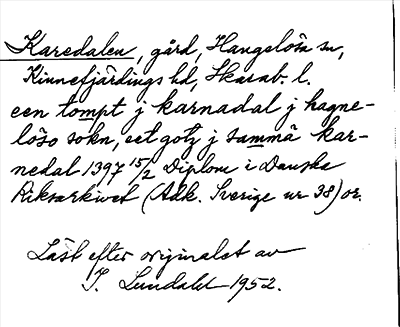 Karedalen, gård, Hangelösa sn,
Kinnefjärdings hd, Skarab. l.
een tompt j karnadal j hagne-
löso sokn, eet gotz j sammā kar-
nedal 1397 15/2 Diplom i Danska
Riksarkivet (Adk. Sverige nr 38) or.
Läst efter originalet av
I. Lundahl 1952.